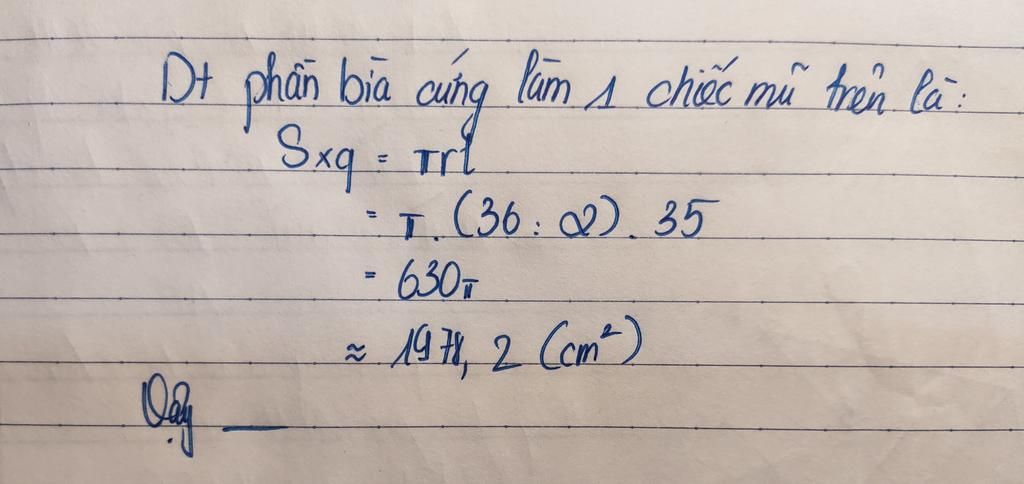 Dt phần bìa cứng làm 1 chiếc mũ trên là:
Sxq = πrl
= π. (36 : 2). 35
= 630π
≈ 1978, 2 (cm²)
Vậy __